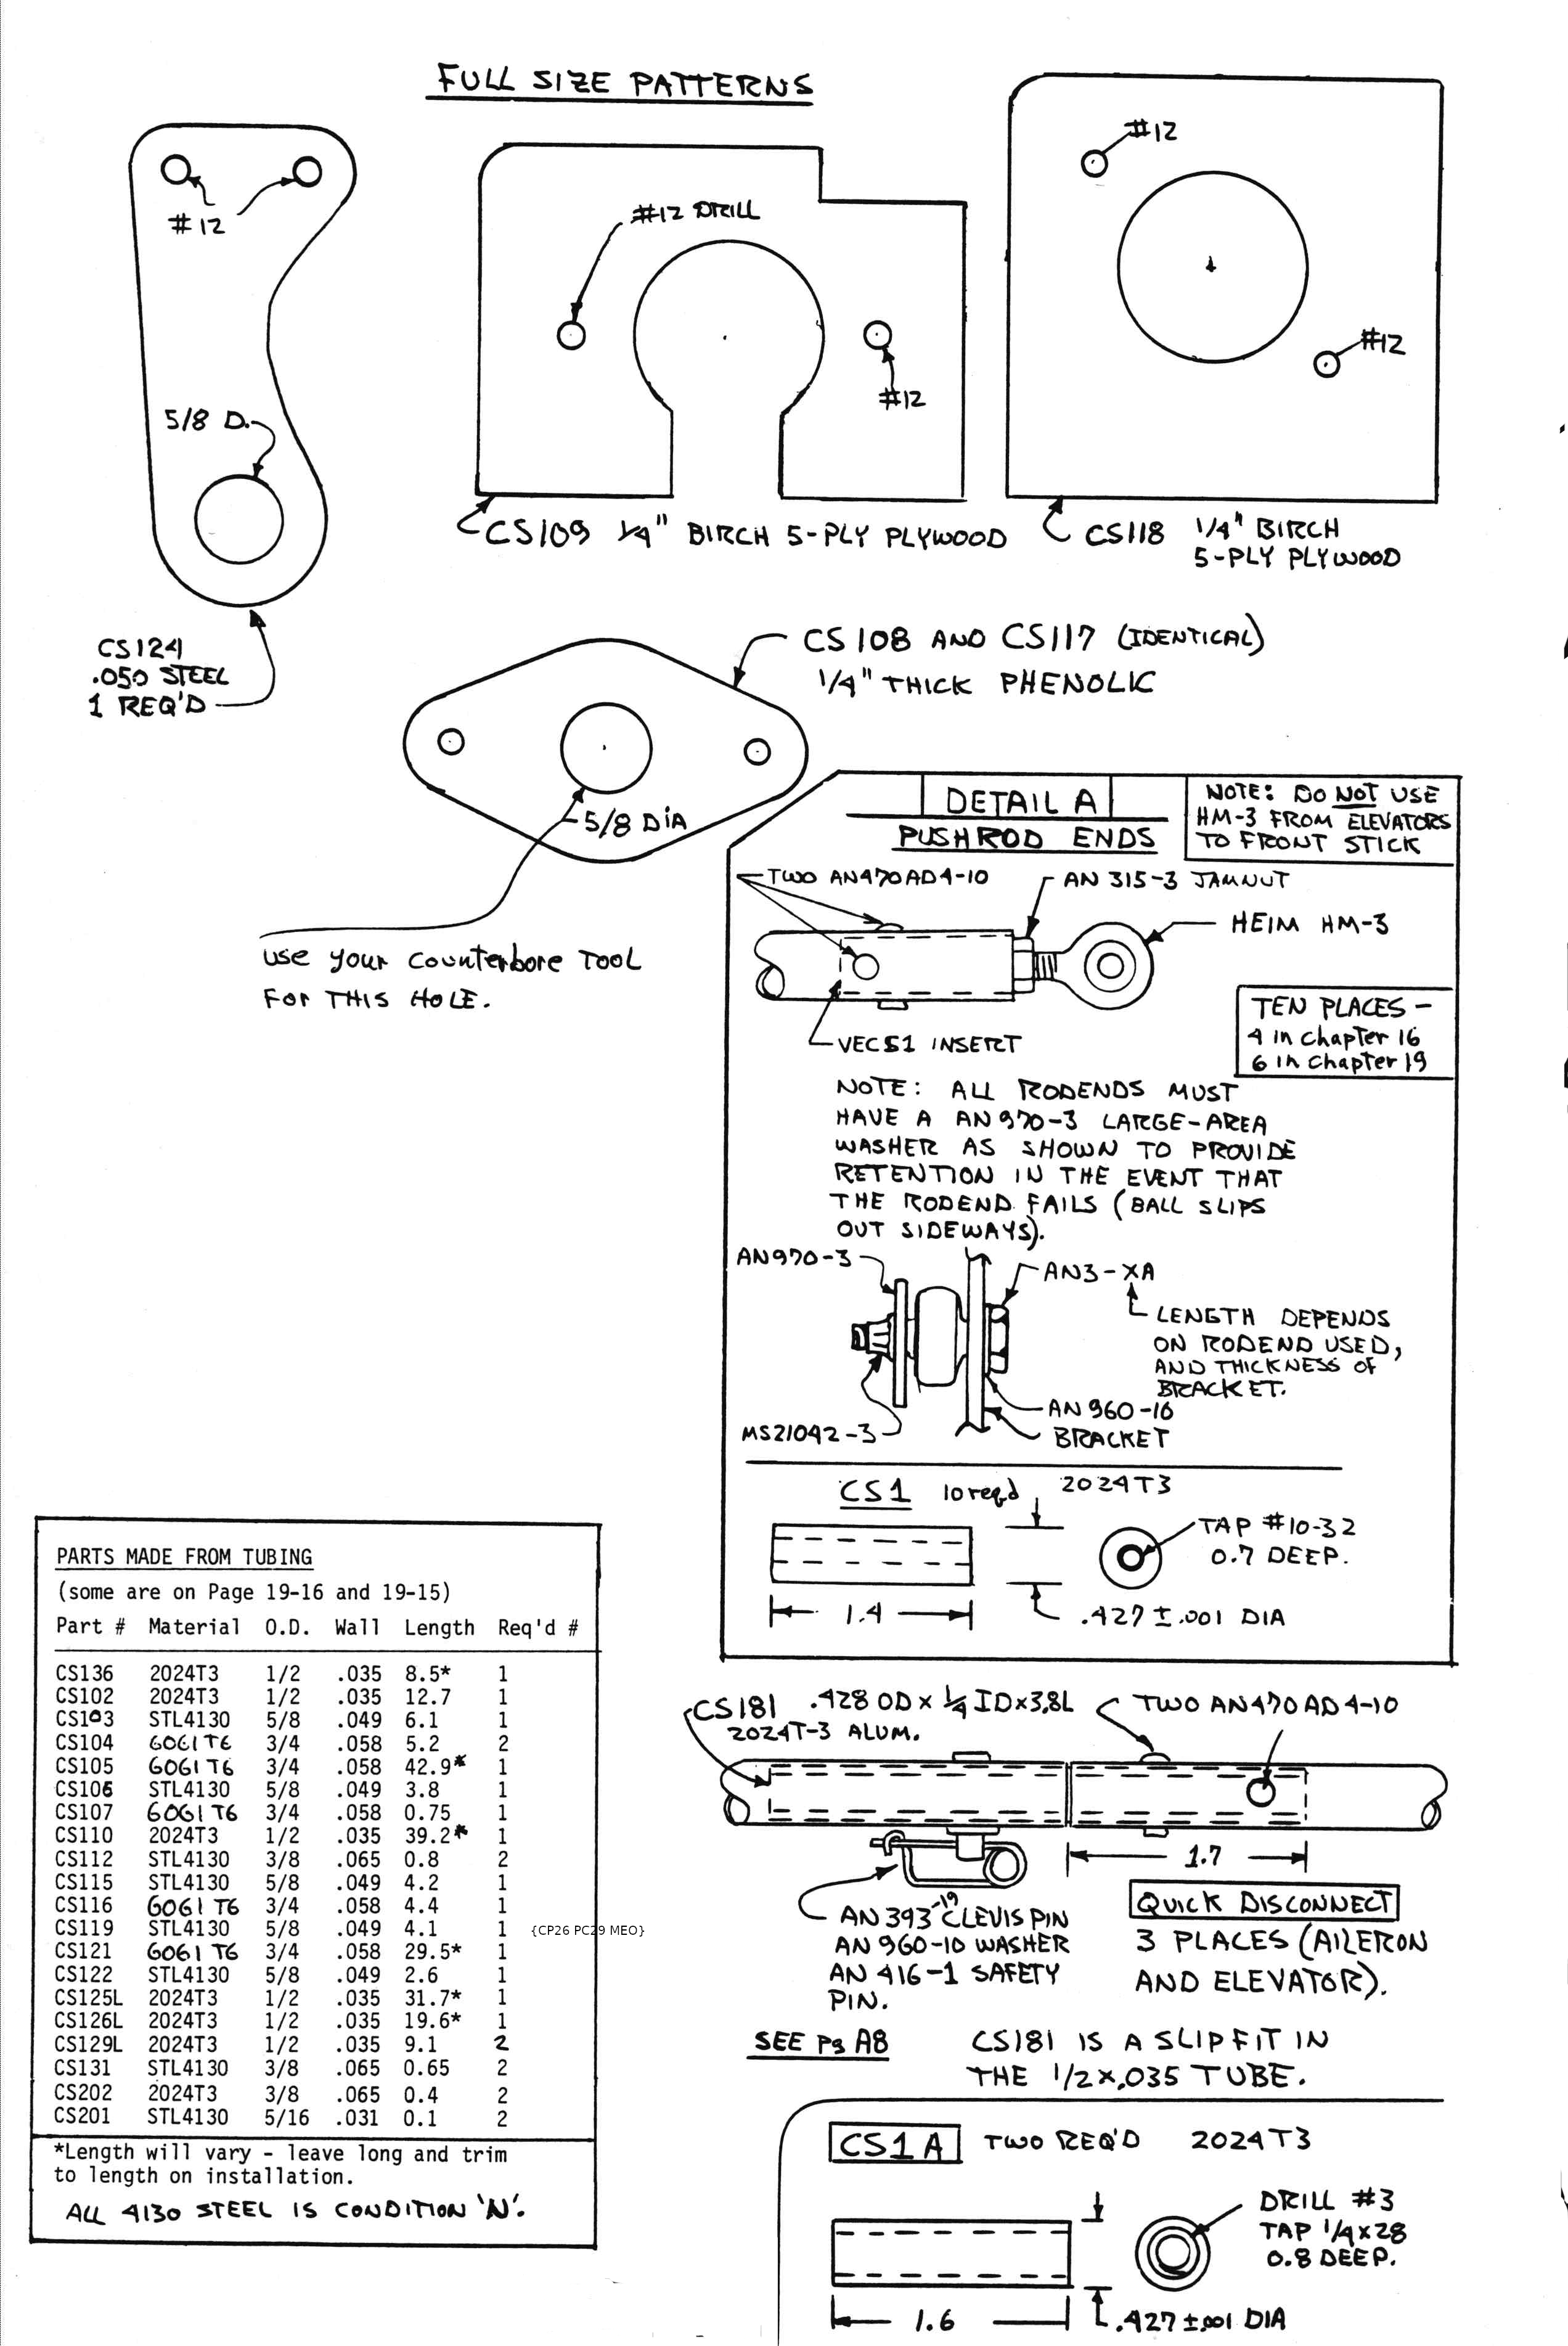 FULL SIZE PATTERNS
#12
#12 DRILL
#12
CS109 1/4" BIRCH 5-PLY PLYWOOD
#12
#12
CS118 1/4" BIRCH
5-PLY PLYWOOD
5/8 D.
CS124
.050 STEEL
1 REQ'D
CS108 AND CS117 (IDENTICAL)
1/4" THICK PHENOLIC
5/8 DIA
use your counterbore tool
FOR THIS HOLE.
DETAIL A
PUSHROD ENDS
NOTE: DO NOT USE
HM-3 FROM ELEVATORS
TO FRONT STICK
TWO AN470AD4-10
AN 315-3 JAMNUT
HEIM HM-3
VECS1 INSERT
TEN PLACES -
4 in chapter 16
6 in chapter 19
NOTE: ALL RODENDS MUST
HAVE A AN970-3 LARGE-AREA
WASHER AS SHOWN TO PROVIDE
RETENTION IN THE EVENT THAT
THE RODEND FAILS (BALL SLIPS
OUT SIDEWAYS).
AN970-3
AN3-XA
LENGTH DEPENDS
ON RODEND USED,
AND THICKNESS OF
BRACKET.
AN960-10
BRACKET
MS21042-3
CS1 10 req'd 2024T3
TAP #10-32
0.7 DEEP.
1.4
.427 ±.001 DIA
PARTS MADE FROM TUBING
(some are on Page 19-16 and 19-15)
Part # Material O.D. Wall Length Req'd #
CS136 2024T3 1/2 .035 8.5* 1
CS102 2024T3 1/2 .035 12.7 1
CS103 STL4130 5/8 .049 6.1 1
CS104 6061T6 3/4 .058 5.2 2
CS105 6061T6 3/4 .058 42.9* 1
CS106 STL4130 5/8 .049 3.8 1
CS107 6061T6 3/4 .058 0.75 1
CS110 2024T3 1/2 .035 39.2* 1
CS112 STL4130 3/8 .065 0.8 2
CS115 STL4130 5/8 .049 4.2 1
CS116 6061T6 3/4 .058 4.4 1
CS119 STL4130 5/8 .049 4.1 1 {CP26 PC29 MEO}
CS121 6061T6 3/4 .058 29.5* 1
CS122 STL4130 5/8 .049 2.6 1
CS125L 2024T3 1/2 .035 31.7* 1
CS126L 2024T3 1/2 .035 19.6* 1
CS129L 2024T3 1/2 .035 9.1 2
CS131 STL4130 3/8 .065 0.65 2
CS202 2024T3 3/8 .065 0.4 2
CS201 STL4130 5/16 .031 0.1 2
*Length will vary - leave long and trim
to length on installation.
ALL 4130 STEEL IS CONDITION 'N'.
CS181 .428 OD x 1/4 ID x 3.8L
2024T-3 ALUM.
TWO AN470AD4-10
1.7
AN393-19 CLEVIS PIN
AN 960-10 WASHER
AN 416-1 SAFETY
PIN.
QUICK DISCONNECT
3 PLACES (AILERON
AND ELEVATOR).
SEE Pg A8
CS181 IS A SLIP FIT IN
THE 1/2x.035 TUBE.
CS1A TWO REQ'D 2024T3
DRILL #3
TAP 1/4x28
0.8 DEEP.
1.6
.427 ±.001 DIA